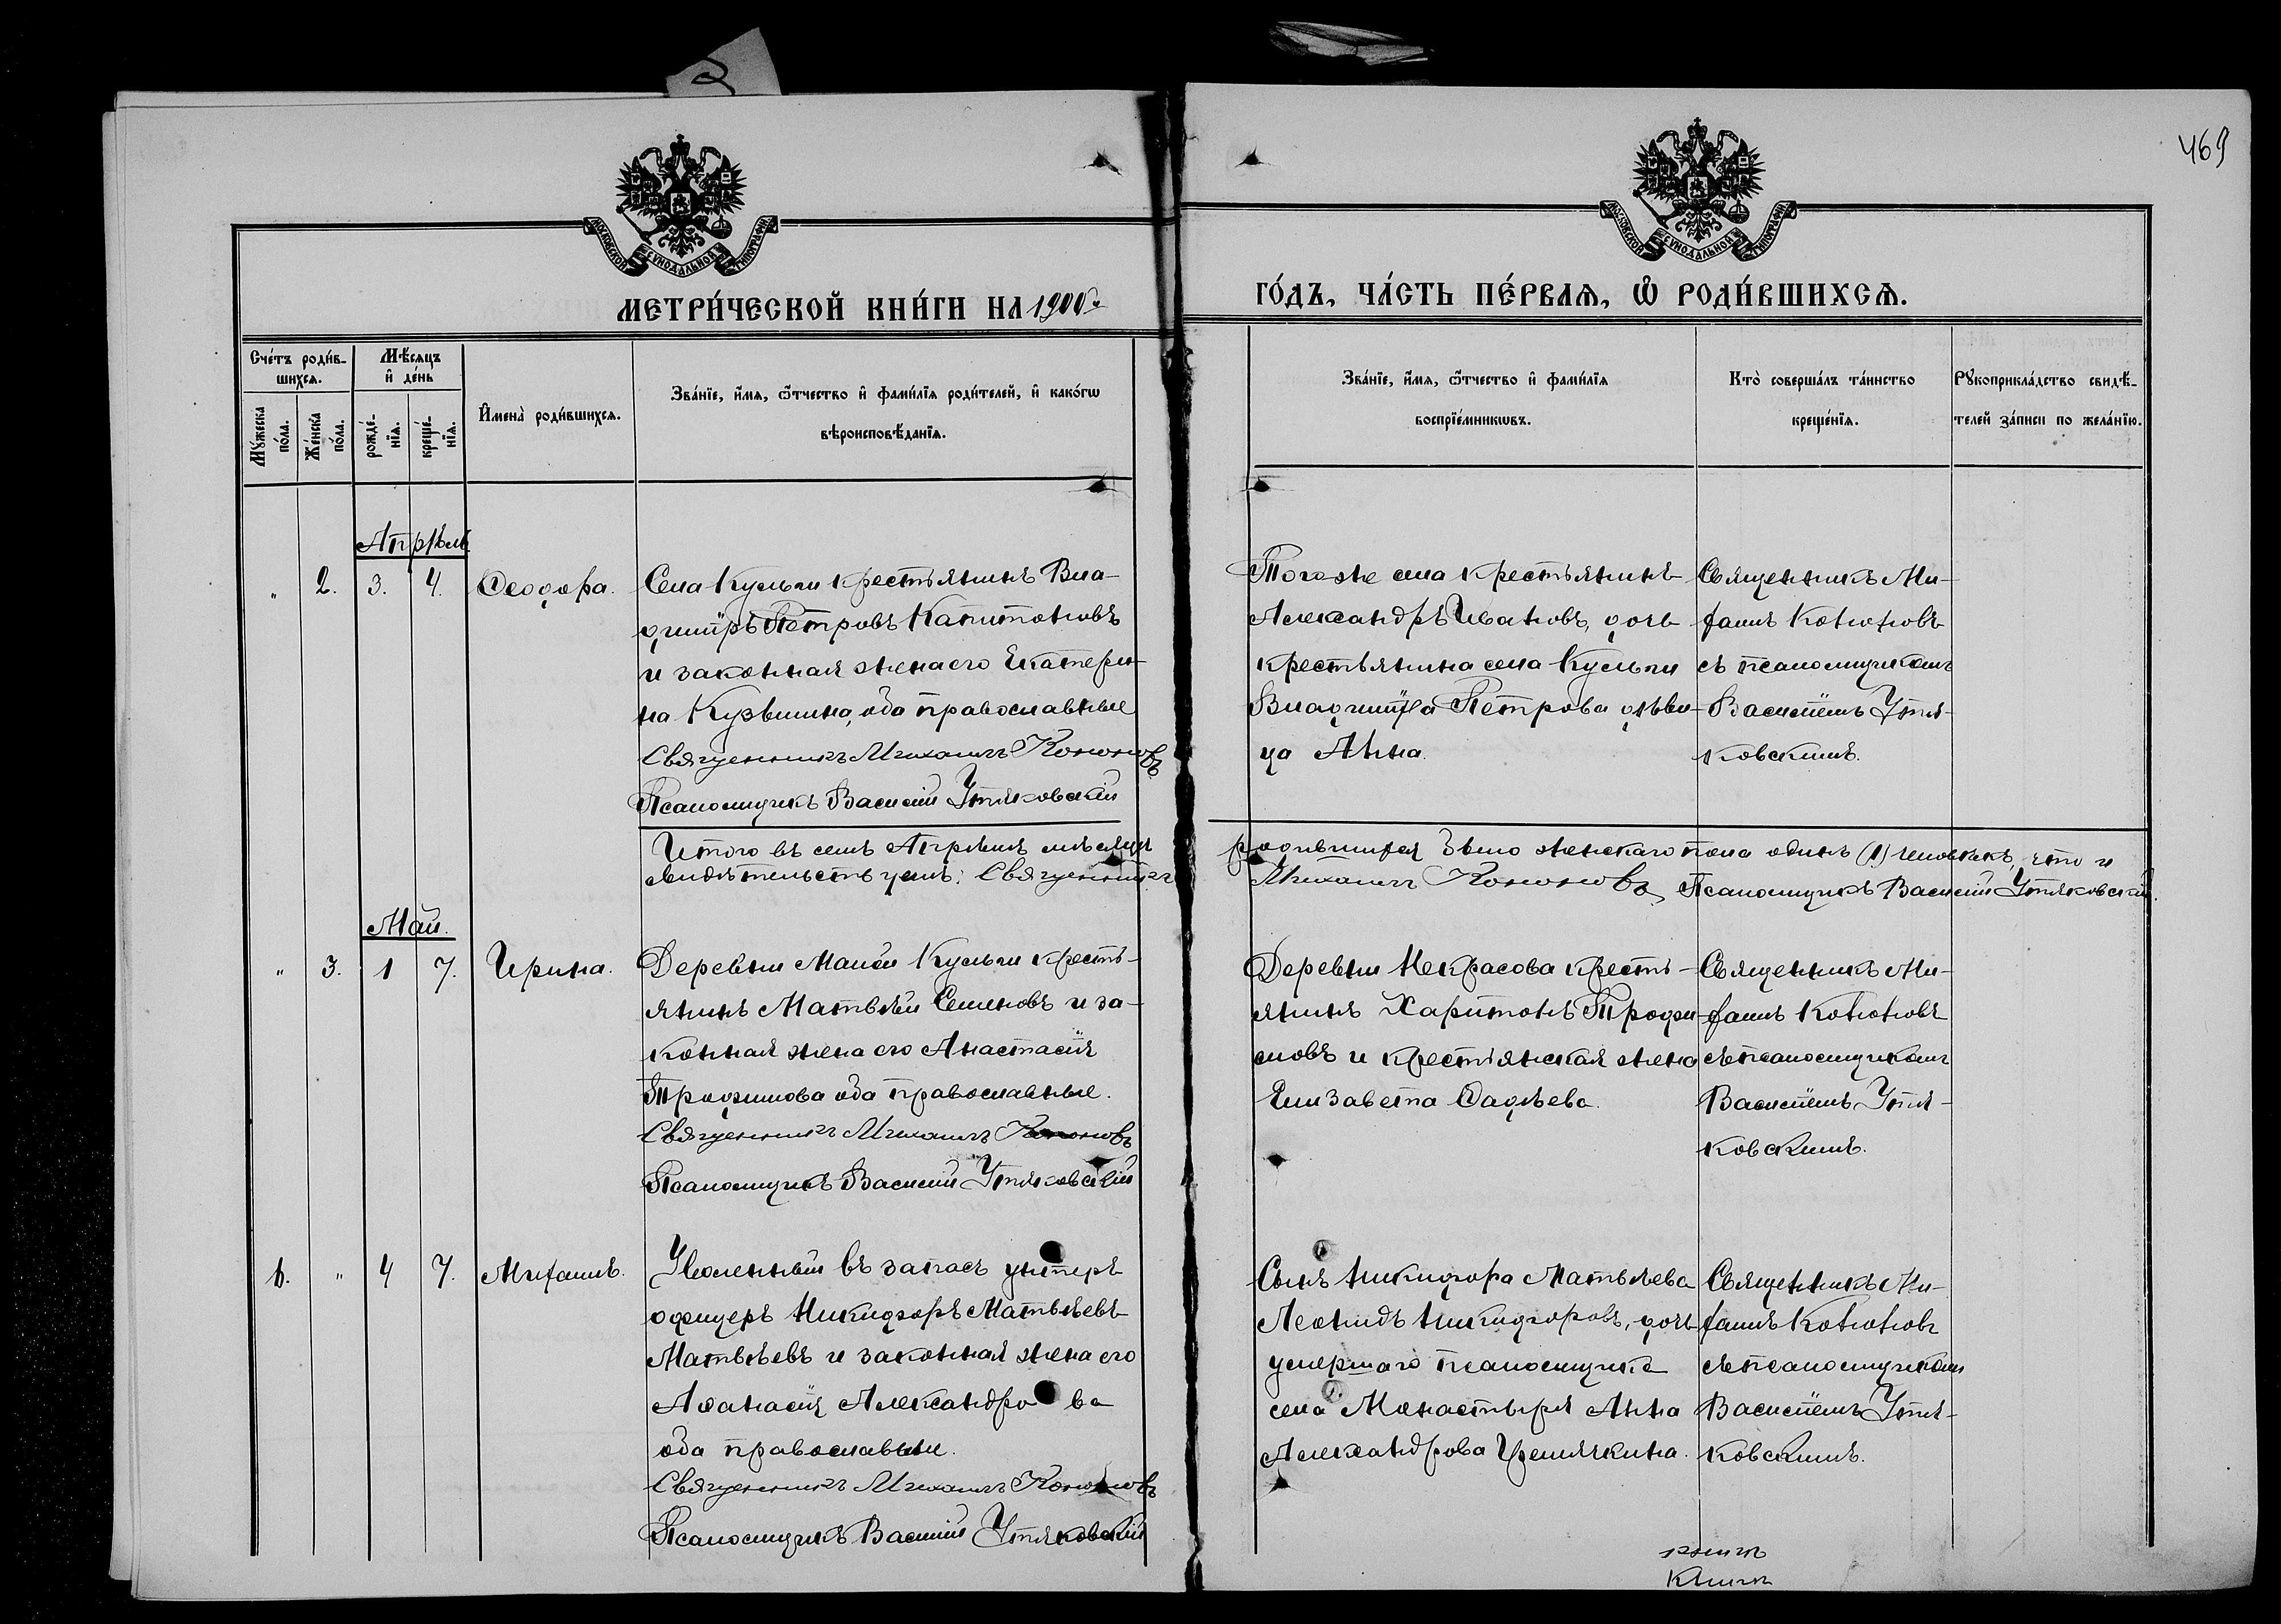 469
МОСКОВСКОЙ СѴНОДАЛЬНОЙ ТИПОГРАФІИ
МОСКОВСКОЙ СѴНОДАЛЬНОЙ ТИПОГРАФІИ
МЕТРИ́ЧЕСКОЙ КНИ́ГИ НА 1900й
ГО́ДЪ, ЧА́СТЬ ПЕ́РВАЯ, Ѡ РОДИ́ВШИХСЯ.
Сче́тъ роди́в-
шихся.
Мѣ́сяцъ
и де́нь
Мꙋ́жеска
по́ла.
Же́нска
по́ла.
рожде́-
нїя.
креще́-
нїя.
Имена̀ роди́вшихся.
Зва́нїе, и́мя, ѻ҆́тчество и҆ фами́лїя роди́телей, и҆ како́гѡ
вѣроисповѣ́данїя.
Зва́нїе, и́мя, ѻ҆́тчество и҆ фами́лїя
воспрїе́мникѡвъ.
Кто̀ соверша́лъ та́инство
креще́нїя.
Рꙋкоприкла́дство свидѣ́-
телей за́писи по жела́нїю.
Апрѣль
" 2. 3. 4. Ѳеодора.
Села Кульги крестьянинъ Вла-
диміръ Петровъ Капитоновъ
и законная жена его Екатери-
на Кузьмина, оба православные
Священникъ Михаилъ Кононовъ
Псаломщикъ Василій Утяковскій
Того же села крестьянинъ
Александръ Ивановъ, дочь
крестьянина села Кульги
Владиміра Петрова дѣви-
ца Анна.
Священникъ Ми-
хаилъ Кононовъ
съ псаломщикомъ
Василіемъ Утя-
ковскимъ.
Итого въ семъ Апрѣлѣ мѣсяцѣ родившихся было женскаго пола одинъ (1) человѣкъ, что и
свидѣтельствуемъ: Священникъ Михаилъ Кононовъ Псаломщикъ Василій Утяковскій.
Май.
" 3. 1 7. Ирина.
Деревни Малой Кульги кресть-
янинъ Матвѣй Семеновъ и за-
конная жена его Анастасія
Трофимова оба православные.
Священникъ Михаилъ Кононовъ
Псаломщикъ Василій Утяковскій
Деревни Некрасова кресть-
янинъ Харитонъ Трофи-
мовъ и крестьянская жена
Елизавета Фадѣева.
Священникъ Ми-
хаилъ Кононовъ
съ псаломщикомъ
Василіемъ Утя-
ковскимъ.
6. " 4 7. Михаилъ.
Уволенный въ запасъ унтеръ
офицеръ Никифоръ Матвѣевъ
Матвѣевъ и законная жена его
Аѳанасія Александрова
оба православные.
Священникъ Михаилъ Кононовъ
Псаломщикъ Василій Утяковскій
Сынъ Никифора Матвѣева
Леонидъ Никифоровъ, дочь
умершаго псаломщика
села Монастыря Анна
Александрова Иремячкина.
Священникъ Ми-
хаилъ Кононовъ
съ псаломщикомъ
Василіемъ Утя-
ковскимъ.